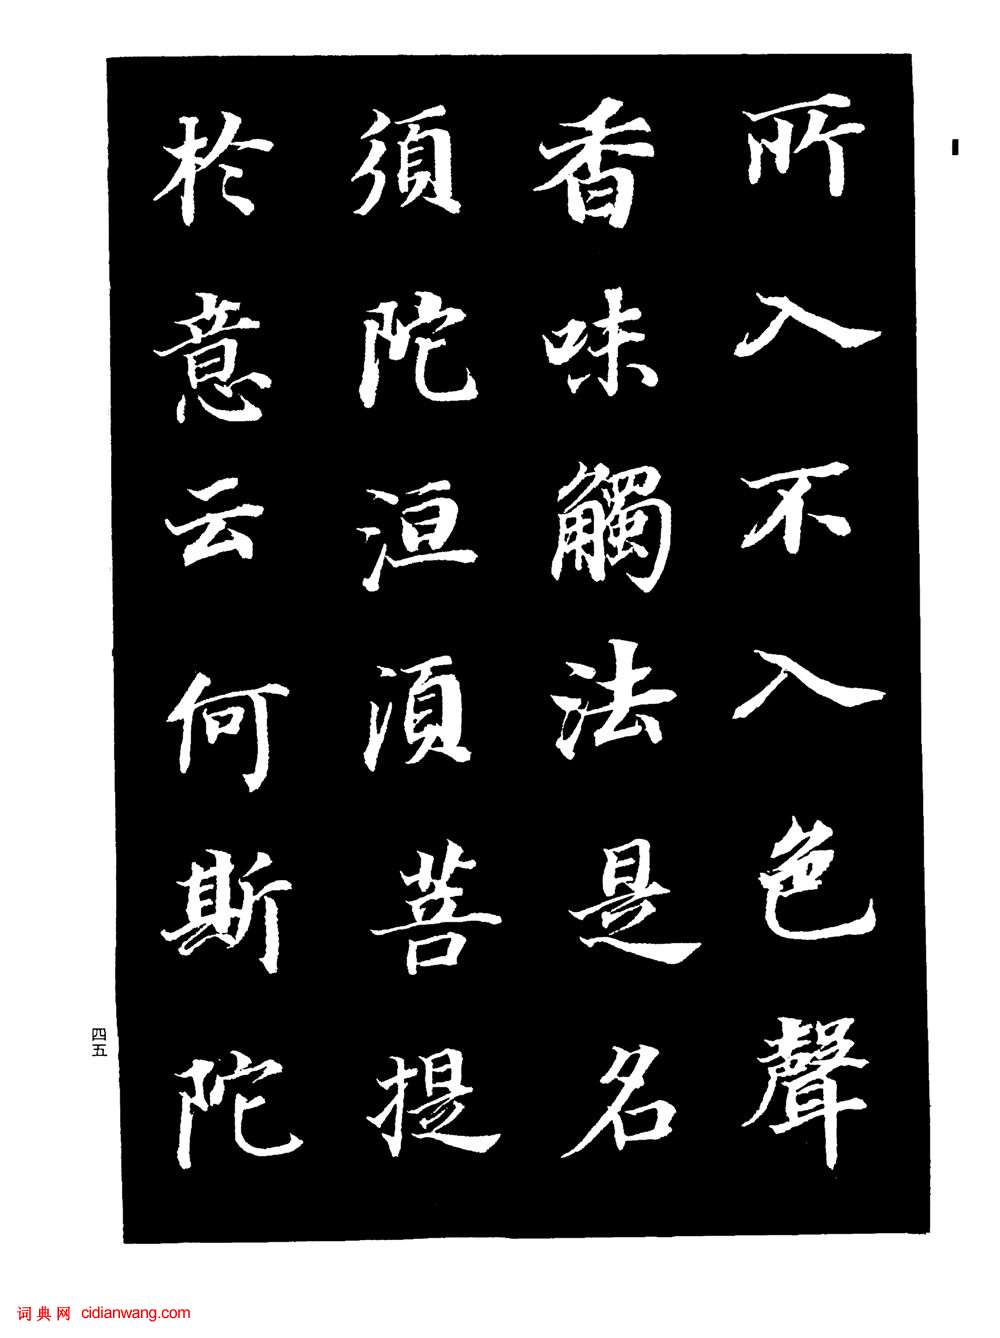 所入不入色聲
香味觸法是名
須陀洹須菩提
於意云何斯陀
四五
词典网 cidianwang.com